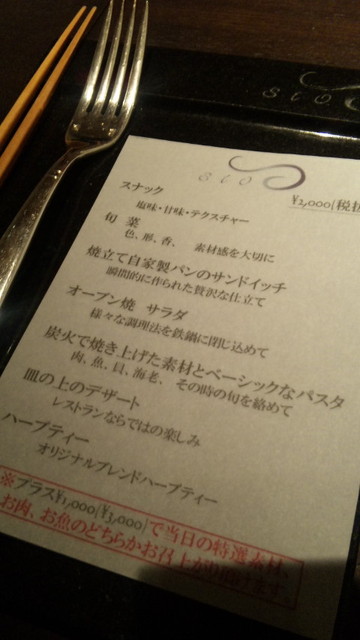 sio
sio
¥2,000(税
スナック
塩味・甘味・テクスチャー
旬 菜
色、形、香、 素材感を大切に
焼立て自家製パンのサンドイッチ
瞬間的に作られた贅沢な仕立て
オーブン焼 サラダ
様々な調理法を鉄鍋に閉じ込めて
炭火で焼き上げた素材とベーシックなパスタ
肉、魚、貝、海老、その時の旬を絡めて
皿の上のデザート
レストランならではの楽しみ
ハーブティー
オリジナルブレンドハーブティー
※プラス¥1,000(¥3,000)で当日の特選素材、
お肉、お魚のどちらかお召上がり頂けます。